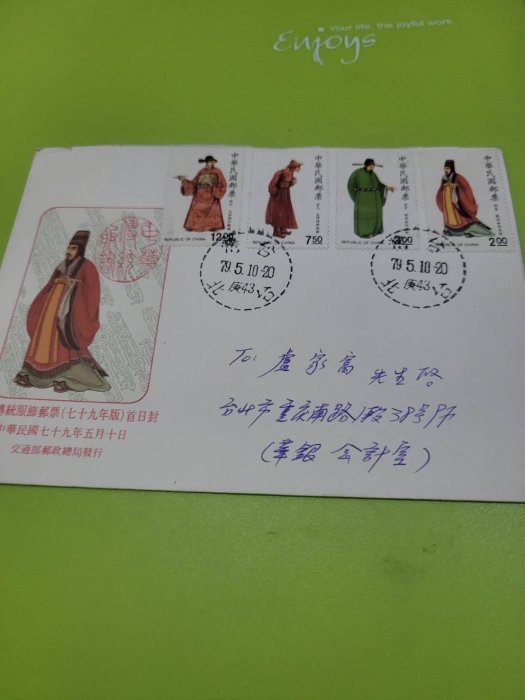 Your life, the joyful work.
Enjoys
中華民國郵票
REPUBLIC OF CHINA
12.00
中華民國郵票
REPUBLIC OF CHINA
7.50
中華民國郵票
REPUBLIC OF CHINA
3.00
中華民國郵票
REPUBLIC OF CHINA
2.00
79.5.10-20
北 庚43
79.5.10-20
北 庚43
中華
傳統
服飾
傳統服飾郵票(七十九年版)首日封
中華民國七十九年五月十日
交通部郵政總局發行
To: 盧家富 先生啓
台北市重慶南路1段38號1F
(華銀 会計室)